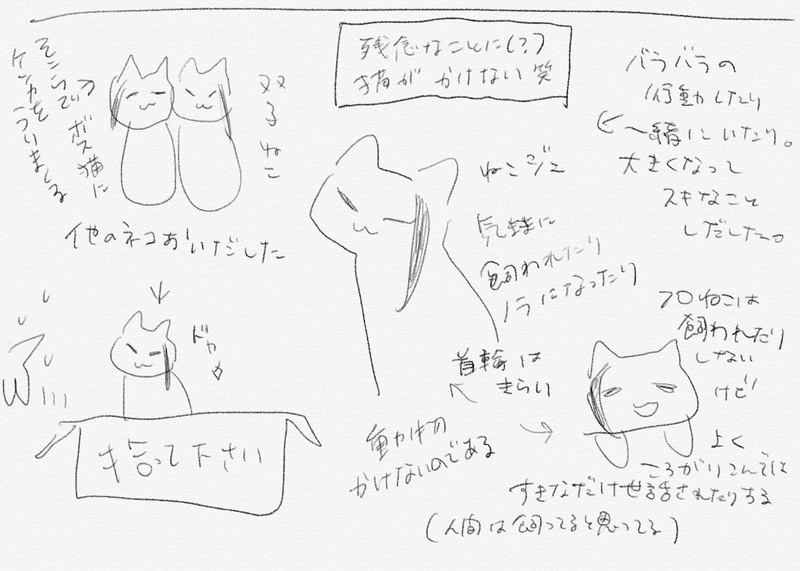 残念なことに(?)
猫が かけない 笑
バラバラの
行動したり
一緒にいたり。
大きくなって
スキなこと
しだした。
双子ねこ
そこらでいつ
ボス猫に
ケンカをうりまくる
他のネコおいだした
ねこジェ
気鋒に
飼われたり
ノラになったり
首輪は
きらい
動物
かけないのである
ドカ
拾って下さい
フロねこは
飼われたり
しない
けど
よく
ころがりこんでは
すきなだけ世話されたりする
(人間は飼ってると思ってる)